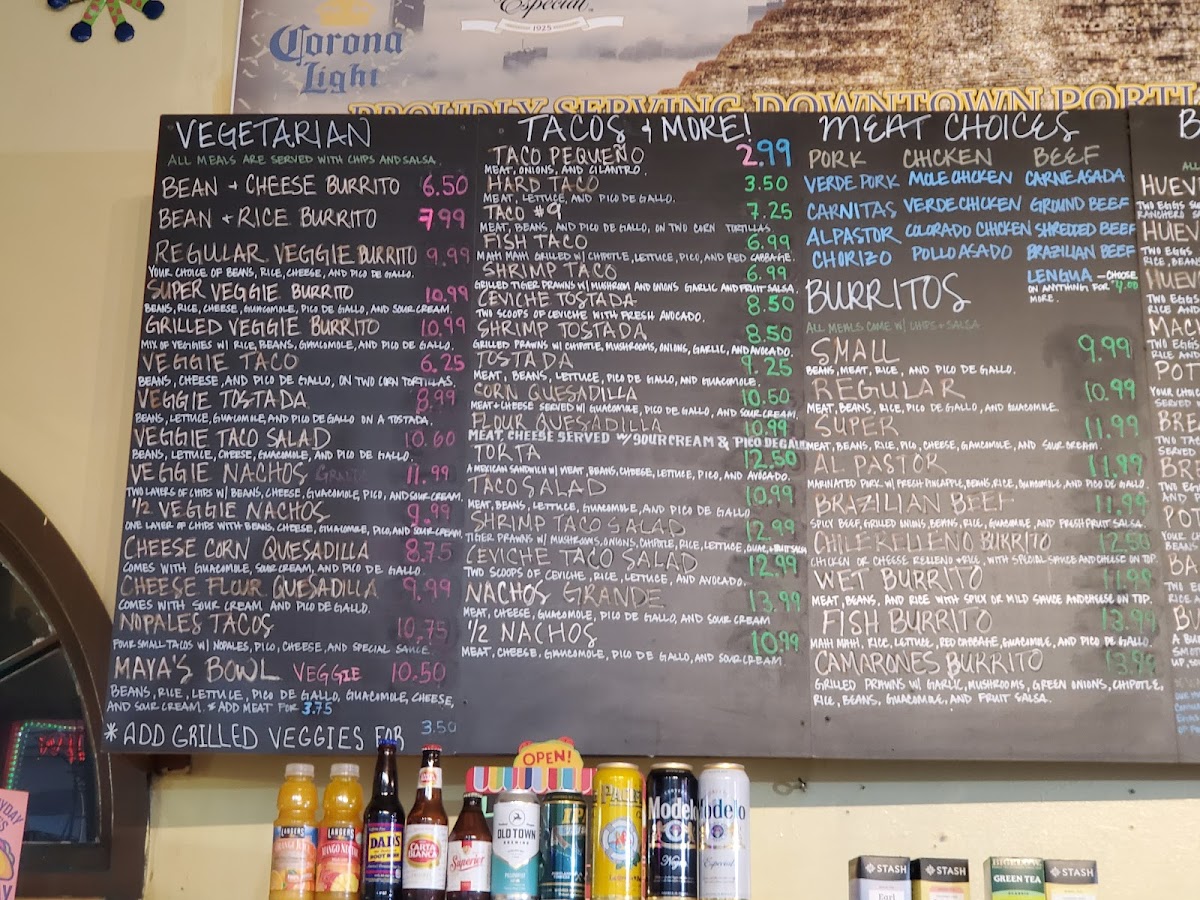 Especial
1925
Corona
Light
PROUDLY SERVING DOWNTOWN
VEGETARIAN
ALL MEALS ARE SERVED WITH CHIPS AND SALSA.
BEAN + CHEESE BURRITO 6.50
BEAN + RICE BURRITO 7.99
REGULAR VEGGIE BURRITO 9.99
YOUR CHOICE OF BEANS, RICE, CHEESE, AND PICO DE GALLO.
SUPER VEGGIE BURRITO 10.99
BEANS, RICE, CHEESE, GUACAMOLE, PICO DE GALLO, AND SOUR CREAM.
GRILLED VEGGIE BURRITO 10.99
MIX OF VEGGIES W/ RICE, BEANS, GUACAMOLE, AND PICO DE GALLO.
VEGGIE TACO 6.25
BEANS, CHEESE, AND PICO DE GALLO, ON TWO CORN TORTILLAS.
VEGGIE TOSTADA 8.99
BEANS, LETTUCE, GUACAMOLE AND PICO DE GALLO ON A TOSTADA.
VEGGIE TACO SALAD 10.60
BEANS, LETTUCE, CHEESE, GUACAMOLE, AND PICO DE GALLO.
VEGGIE NACHOS 11.99
TWO LAYERS OF CHIPS W/ BEANS, CHEESE, GUACAMOLE, PICO, AND SOUR CREAM.
1/2 VEGGIE NACHOS 9.99
ONE LAYER OF CHIPS WITH BEANS, CHEESE, GUACAMOLE, PICO, AND SOUR CREAM
CHEESE CORN QUESADILLA 8.75
COMES WITH GUACAMOLE, SOUR CREAM, AND PICO DE GALLO.
CHEESE FLOUR QUESADILLA 9.99
COMES WITH SOUR CREAM AND PICO DE GALLO.
NOPALES TACOS 10.75
FOUR SMALL TACOS W/ NOPALES, PICO, CHEESE, AND SPECIAL SAUCE.
MAYA'S BOWL VEGGIE 10.50
BEANS, RICE, LETTUCE, PICO DE GALLO, GUACAMOLE, CHEESE,
AND SOUR CREAM. * ADD MEAT FOR 3.75
* ADD GRILLED VEGGIES FOR 3.50
TACOS + MORE!
TACO PEQUEÑO 2.99
MEAT, ONIONS, AND CILANTRO.
HARD TACO 3.50
MEAT, LETTUCE, AND PICO DE GALLO.
TACO #9 7.25
MEAT, BEANS, AND PICO DE GALLO, ON TWO CORN TORTILLAS
FISH TACO 6.99
MAHI MAHI GRILLED W/ CHIPOTLE, LETTUCE, PICO, AND RED CABBAGE.
SHRIMP TACO 6.99
GRILLED TIGER PRAWNS W/ MUSHROOM AND ONIONS GARLIC AND FRUIT SALSA.
CEVICHE TOSTADA 8.50
TWO SCOOPS OF CEVICHE WITH FRESH AVOCADO.
SHRIMP TOSTADA 8.50
GRILLED PRAWNS W/ CHIPOTLE, MUSHROOMS, ONIONS, GARLIC, AND AVOCADO.
TOSTADA 9.25
MEAT, BEANS, LETTUCE, PICO DE GALLO, AND GUACAMOLE.
CORN QUESADILLA 10.50
MEAT + CHEESE SERVED W/ GUACAMOLE, PICO DE GALLO, AND SOUR CREAM.
FLOUR QUESADILLA 10.99
MEAT, CHEESE SERVED W/ SOUR CREAM & PICO DE
TORTA 12.50
A MEXICAN SANDWICH W/ MEAT, BEANS, CHEESE, LETTUCE, PICO, AND AVOCADO.
TACO SALAD 10.99
MEAT, BEANS, LETTUCE, GUACAMOLE, AND PICO DE GALLO
SHRIMP TACO SALAD 12.99
TIGER PRAWNS W/ MUSHROOMS, ONIONS, CHIPOTLE, RICE, LETTUCE,
CEVICHE TACO SALAD 12.99
TWO SCOOPS OF CEVICHE, RICE, LETTUCE, AND AVOCADO.
NACHOS GRANDE 13.99
MEAT, CHEESE, GUACAMOLE, PICO DE GALLO, AND SOUR CREAM
1/2 NACHOS 10.99
MEAT, CHEESE, GUACAMOLE, PICO DE GALLO, AND SOUR CREAM
MEAT CHOICES
PORK CHICKEN BEEF
VERDE PORK MOLE CHICKEN CARNE ASADA
CARNITAS VERDE CHICKEN GROUND BEEF
AL PASTOR COLORADO CHICKEN SHREDDED BEEF
CHORIZO POLLO ASADO BRAZILIAN BEEF
LENGUA - CHOOSE
ON ANYTHING FOR $4.00
MORE.
BURRITOS
ALL MEALS COME W/ CHIPS + SALSA
SMALL 9.99
BEANS, MEAT, RICE, AND PICO DE GALLO.
REGULAR 10.99
MEAT, BEANS, RICE, PICO DE GALLO, AND GUACAMOLE.
SUPER 11.99
MEAT, BEANS, RICE, PICO, CHEESE, GUACAMOLE, AND SOUR CREAM.
AL PASTOR 11.99
MARINATED PORK W/ FRESH PINEAPPLE, BEANS, RICE, GUACAMOLE, AND PICO DE GALLO.
BRAZILIAN BEEF 11.99
SPICY BEEF, GRILLED ONIONS, BEANS, RICE, GUACAMOLE, AND FRESH FRUIT SALSA.
CHILE RELLENO BURRITO 12.50
CHICKEN OR CHEESE RELLENO + RICE, WITH SPECIAL SAUCE AND CHEESE ON TOP.
WET BURRITO 11.99
MEAT, BEANS, AND RICE WITH SPICY OR MILD SAUCE AND CHEESE ON TOP.
FISH BURRITO 13.99
MAHI MAHI, RICE, LETTUCE, RED CABBAGE, GUACAMOLE, AND PICO DE GALLO.
CAMARONES BURRITO 13.99
GRILLED PRAWNS W/ GARLIC, MUSHROOMS, GREEN ONIONS, CHIPOTLE,
RICE, BEANS, GUACAMOLE, AND FRUIT SALSA.
OPEN!
LANGERS
LANGERS
MANGO NECTAR
DAD'S
ROOT BEER
CARTA
BLANCA
Superior
OLD TOWN
BREWING
Modelo
Negra
Modelo
Especial
STASH
Earl
STASH
GREEN TEA
STASH